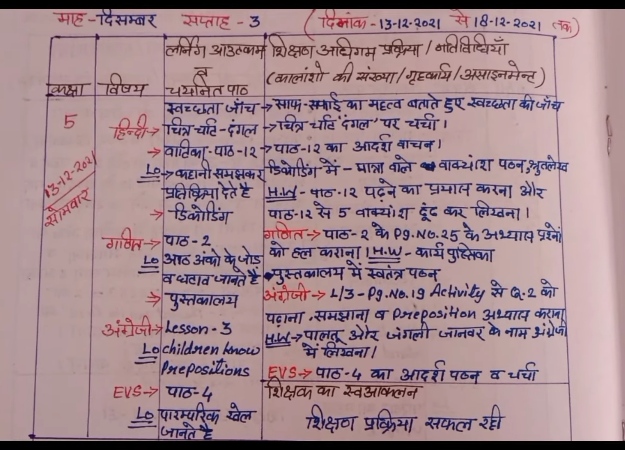 माह-दिसम्बर सप्ताह-3 (दिनांक-13-12-2021 से 18-12-2021 तक)
कक्षा
विषय
लर्निंग आउटकम
व
चयनित पाठ
शिक्षण अधिगम प्रक्रिया/गतिविधियाँ
(कालांशो की संख्या/गृहकार्य/असाइनमेन्ट)
5
13-12-2021
सोमवार
स्वच्छता जाँच → साफ-सफाई का महत्व बताते हुए स्वच्छता की जाँच
हिन्दी→ चित्र चार्ट-दंगल → चित्र चार्ट "दंगल" पर चर्चा।
→ वाटिका-पाठ-12 → पाठ-12 का आदर्श वाचन।
LO → कहानी समझकर
प्रतिक्रिया देते है
→ डिकोडिंग
डिकोडिंग में - मात्रा वाले वाक्यांश पठन, श्रुतलेख
H.W - पाठ-12 पढ़ने का प्रयास करना और
पाठ-12 से 5 वाक्यांश ढूंद कर लिखना।
गणित→ पाठ-2
LO आठ अंको के जोड़
व घटाव जानते है
→ पुस्तकालय
गणित→ पाठ-2 के Pg.No.25 के अभ्यास प्रश्नों
को हल कराना। H.W - कार्य पुस्तिका
पुस्तकालय में स्वतंत्र पठन
अंग्रेजी→ Lesson-3
LO children know
Prepositions
अंग्रेजी→ L/3-Pg.No.19 Activity से Q.2 को
पढ़ाना, समझाना व Preposition अभ्यास कराना
H.W→ पालतू और जंगली जानवर के नाम अंग्रेजी
में लिखना।
EVS→ पाठ-4
LO पारम्परिक खेल
जानते है
EVS→ पाठ-4 का आदर्श पठन व चर्चा
शिक्षक का स्वआकलन
शिक्षण प्रक्रिया सफल रही